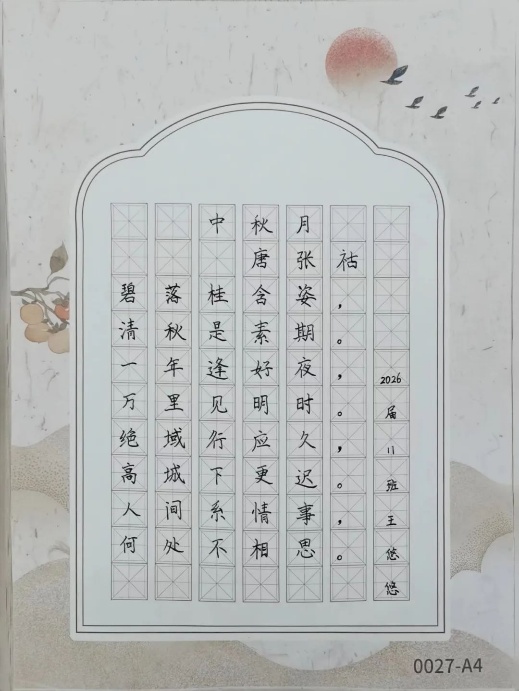 中秋月
唐张祜
碧落桂含姿，
清秋是素期。
一年逢好夜，
万里见明时。
绝域行应久，
高城下更迟。
人间系情事，
何处不相思。
2026届11班王悠悠
0027-A4